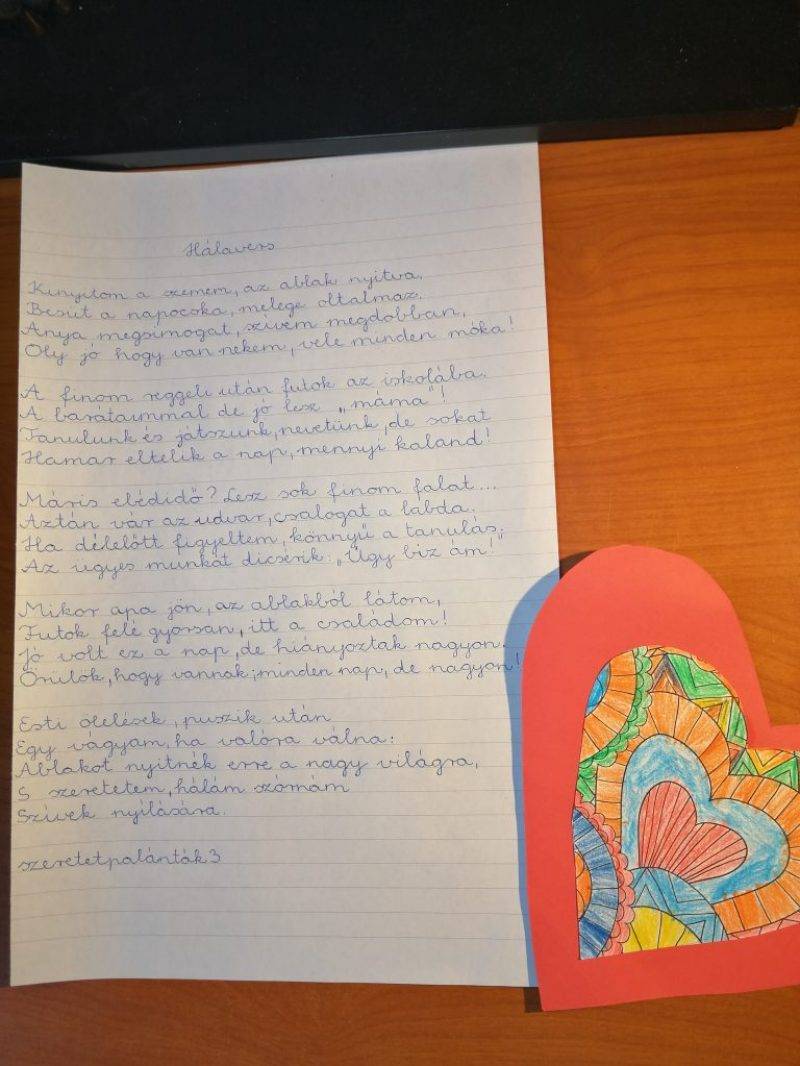 Hálavers
Kinyitom a szemem, az ablak nyitva,
Besüt a napocska, melege oltalmaz.
Anya megsimogat, szívem megdobban,
Oly jó hogy van nekem, vele minden móka!
A finom reggeli után futok az iskolába.
A barátaimmal de jó lesz „máma"!
Tanulunk és játszunk, nevetünk, de sokat
Hamar eltelik a nap, mennyi kaland!
Máris ebédidő? Lesz sok finom falat...
Aztán vár az udvar, csalogat a labda.
Ha délelőtt figyeltem, könnyű a tanulás;
Az ügyes munkát dicsérik: „Úgy biz ám!"
Mikor apa jön, az ablakból látom,
Futok felé gyorsan, itt a családom!
Jó volt ez a nap, de hiányoztak nagyon.
Örülök, hogy vannak; minden nap, de nagyon!
Esti ölelések, puszik után
Egy vágyam, ha valóra válna:
Ablakot nyitnék erre a nagy világra,
S szeretetem, hálám szórnám
Szívek nyílására.
szeretetpalánták3